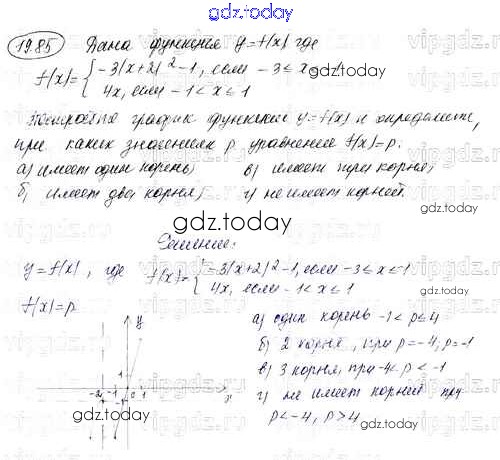 gdz.today
19.85 Дана функция y=f(x) где
f(x)={ -3(x+2)²-1, если -3≤x≤-1
4x, если -1<x≤1
Постройте график функции y=f(x) и определите,
при каких значениях p уравнение f(x)=p.
а) имеет один корень; в) имеет три корня;
б) имеет два корня; г) не имеет корней.
gdz.today
Решение:
y=f(x), где f(x)={ -3(x+2)²-1, если -3≤x≤-1
4x, если -1<x≤1
f(x)=p
а) один корень -1<p≤4
б) 2 корня, при p=-4, p=-1
в) 3 корня, при -4<p<-1
г) не имеет корней при
p<-4, p>4
y
-2 -1 0 1 x
gdz.today
gdz.today